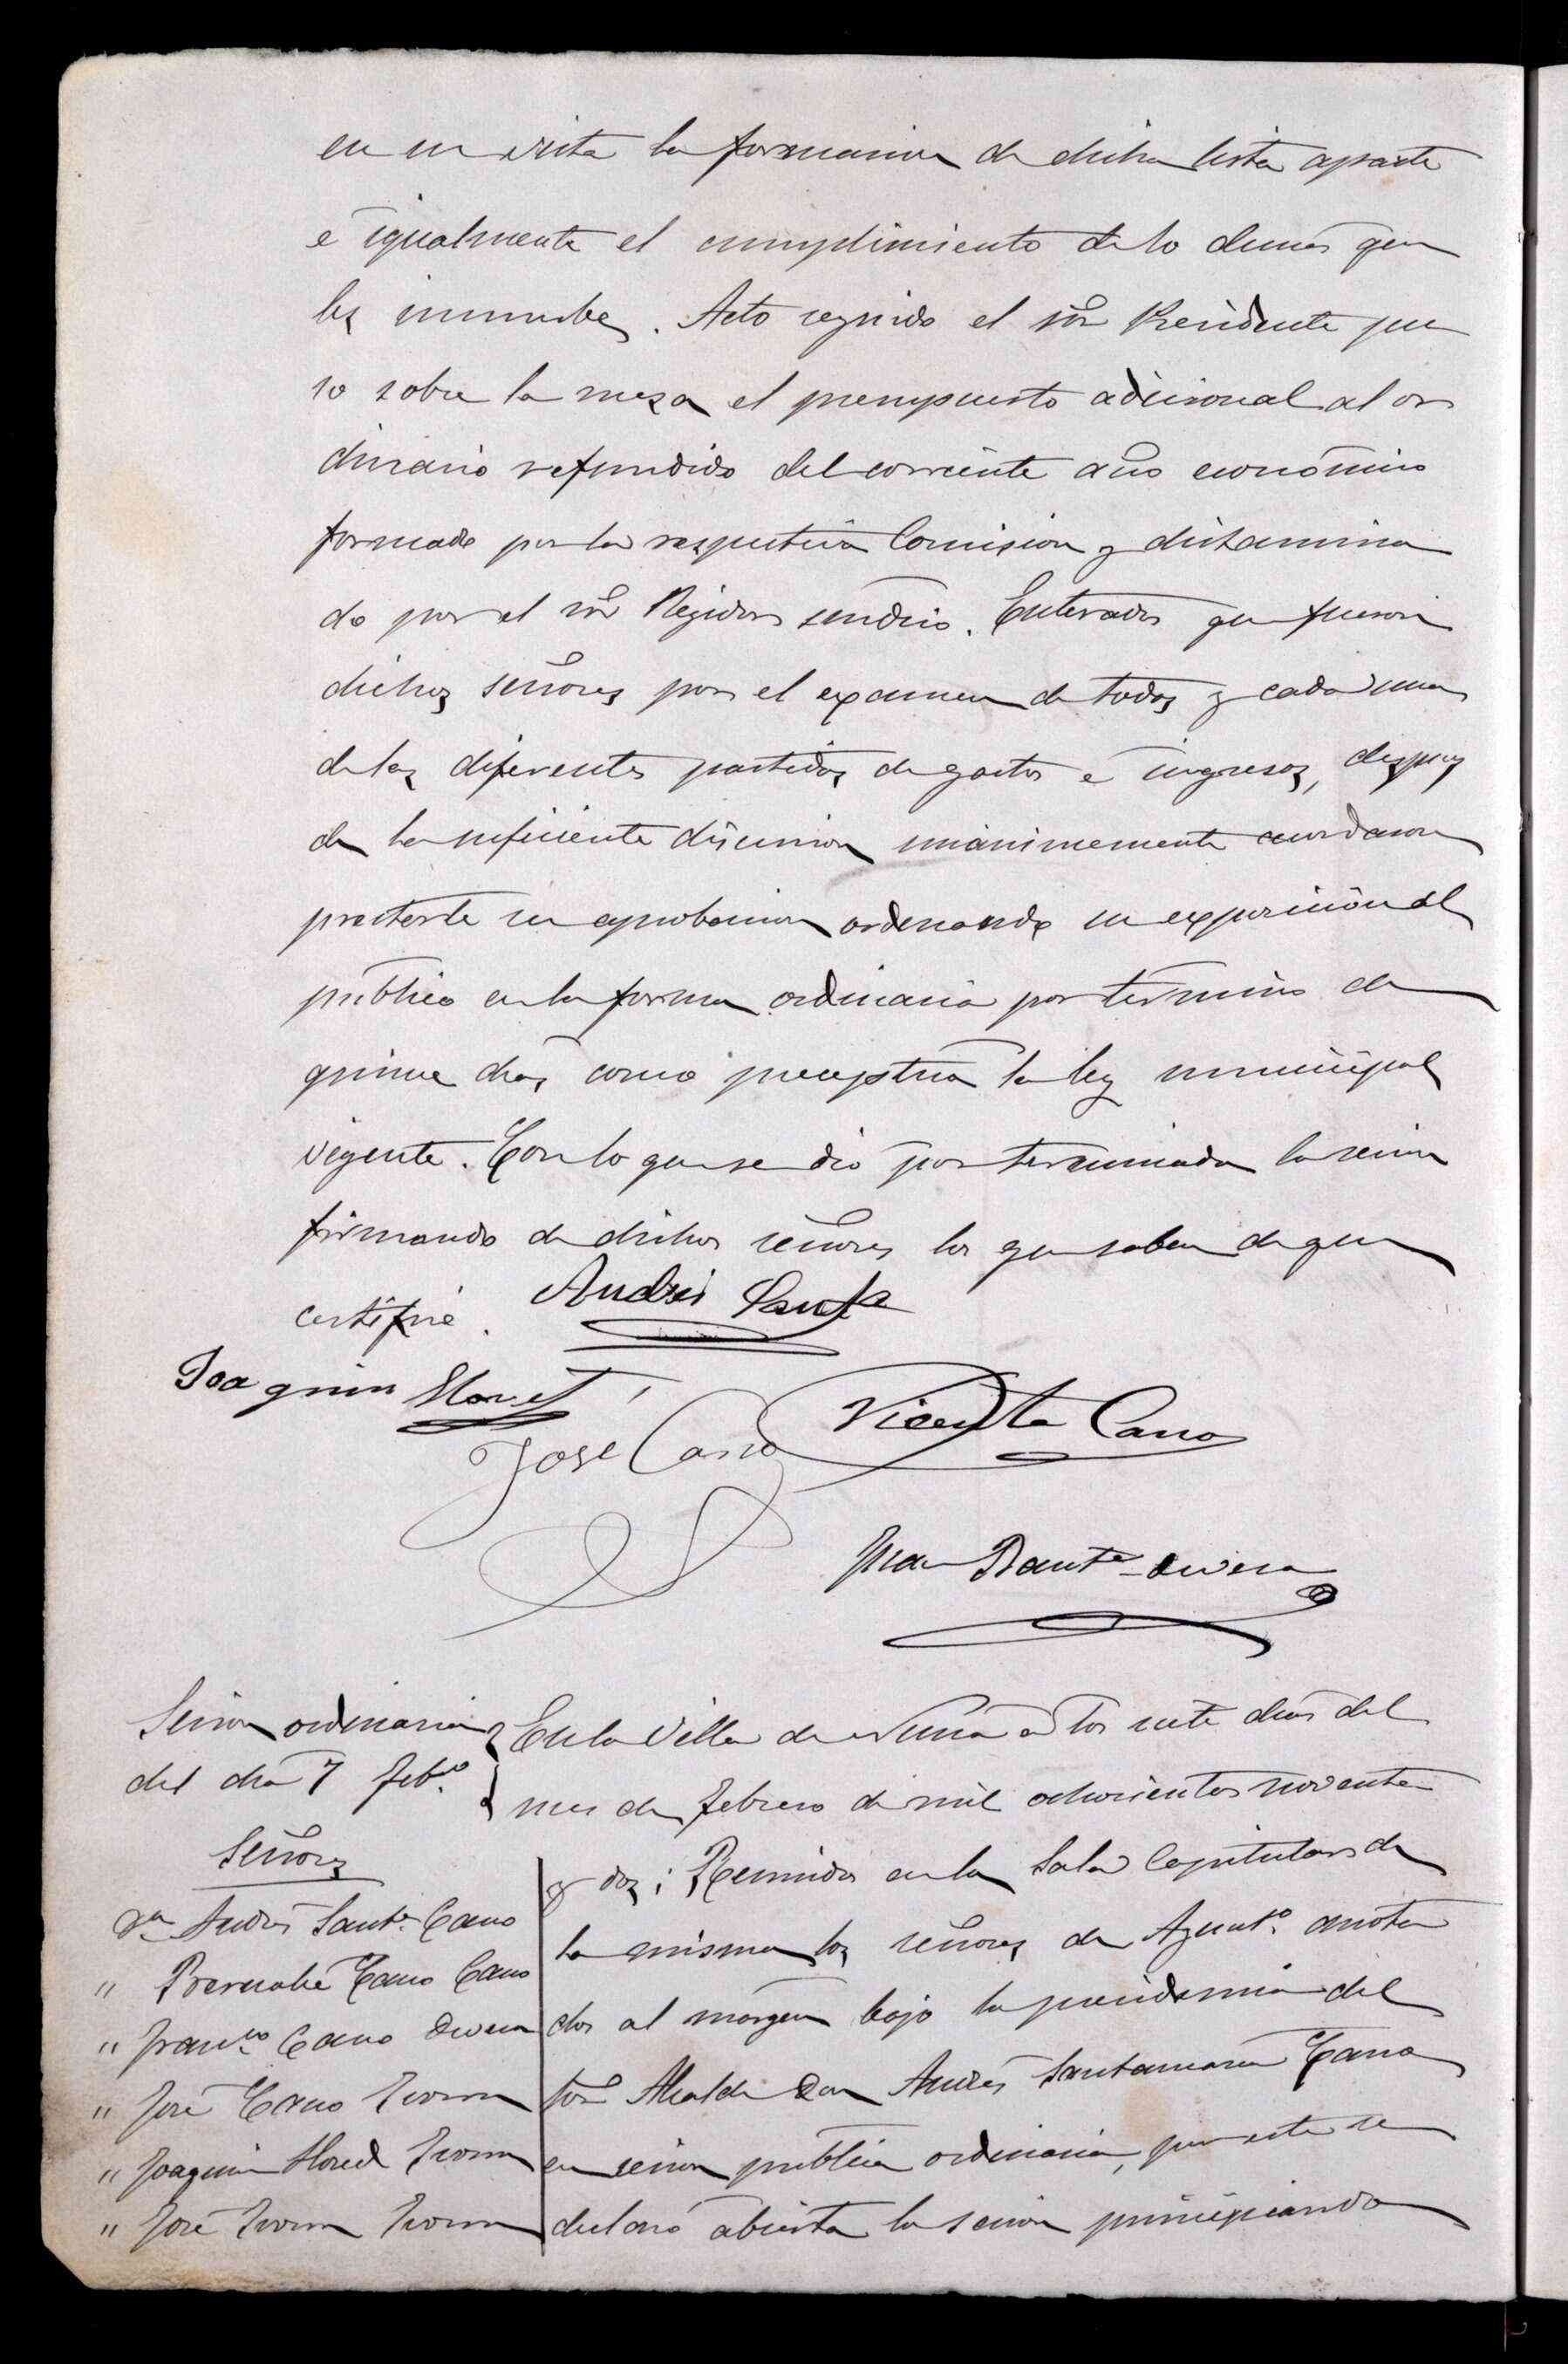 en su vista la formacion de dicha lista aparte
é igualmente el cumplimiento de lo demas que
les incumbe. Acto seguido el Sör Presidente pu
so sobre la mesa el presupuesto adicional al or
dinario refundido del corriente año económico
formado por la respectiva Comision y dictamina
do por el Sör Regidor sindico. Enterados que fueron
dichos señores por el examen de todas y cada una
de las diferentes partidas de gastos é ingresos, despues
de la suficiente discusion unánimemente acordaron
prestarle su aprobacion ordenando su exposición al
público en la forma ordinaria por término de
quince dias como preceptua la ley municipal
vigente. Con lo que se dió por terminada la sesion
firmando de dichos señores los que saben de que
certifico.
Andrés Santª
Joaquin Lloret
José Cano
Vicente Cano
Juan Bautª Devesa
Sesion ordinaria
del dia 7 febº.
Señores
Dn Andrés Santª Cano
" Bernabé Cano Cano
" Francº Cano Devesa
" José Cano Ivorra
" Joaquin Llored Ivorra
" José Ivorra Ivorra
En la Villa de a los siete dias del
mes de febrero de mil ochocientos noventa
y dos; Reunidos en la Sala Capitular de
la misma los señores de Ayuntº. anota
dos al márgen bajo la presidencia del
Sör Alcalde Don Andrés Santamaria Cano
en sesion publica ordinaria, por este se
declaró abierta la sesion principiando